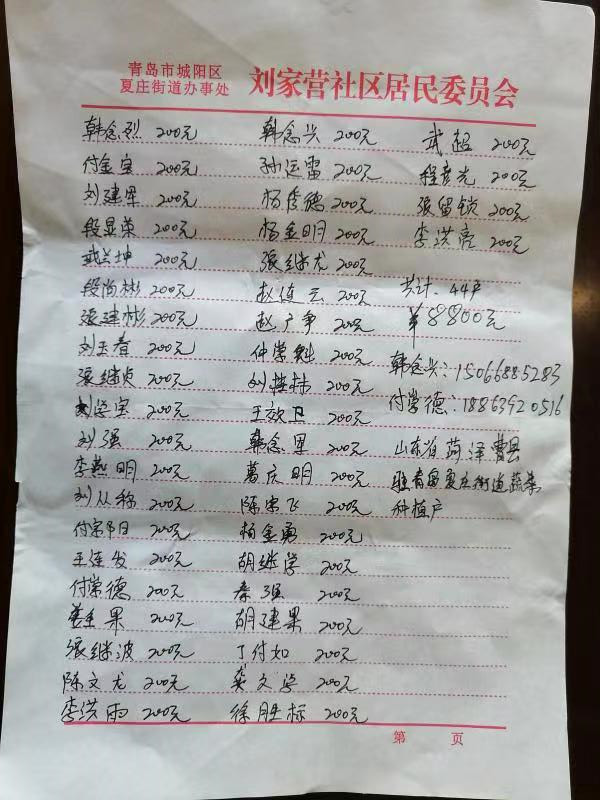 青岛市城阳区
夏庄街道办事处
刘家营社区居民委员会
韩念烈 200元 韩念兴 200元 武超 200元
付金宝 200元 孙运雷 200元 程彦光 200元
刘建军 200元 杨秀德 200元 张留锁 200元
段显荣 200元 杨金明 200元 李洪亮 200元
坤 200元 张继龙 200元
段尚彬 200元 赵连云 200元 共计:44户
张建彬 200元 赵广争 200元 ¥8800元
刘玉春 200元 仲崇魁 200元 韩念兴:15066885283
张继贞 200元 刘桂林 200元 付崇德:18863920516
宝 200元 王效卫 200元
刘强 200元 韩念里 200元 山东省菏泽曹县
李燕明 200元 葛庆明 200元 驻青岛夏庄街道蔬菜
刘从称 200元 陈宗飞 200元 种植户
付宗节日 200元 杨金勇 200元
王连发 200元 胡继学 200元
付崇德 200元 秦强 200元
果 200元 胡建果 200元
张继波 200元 丁付如 200元
陈文龙 200元 龚文学 200元
李洪雨 200元 徐胜标 200元
第 页